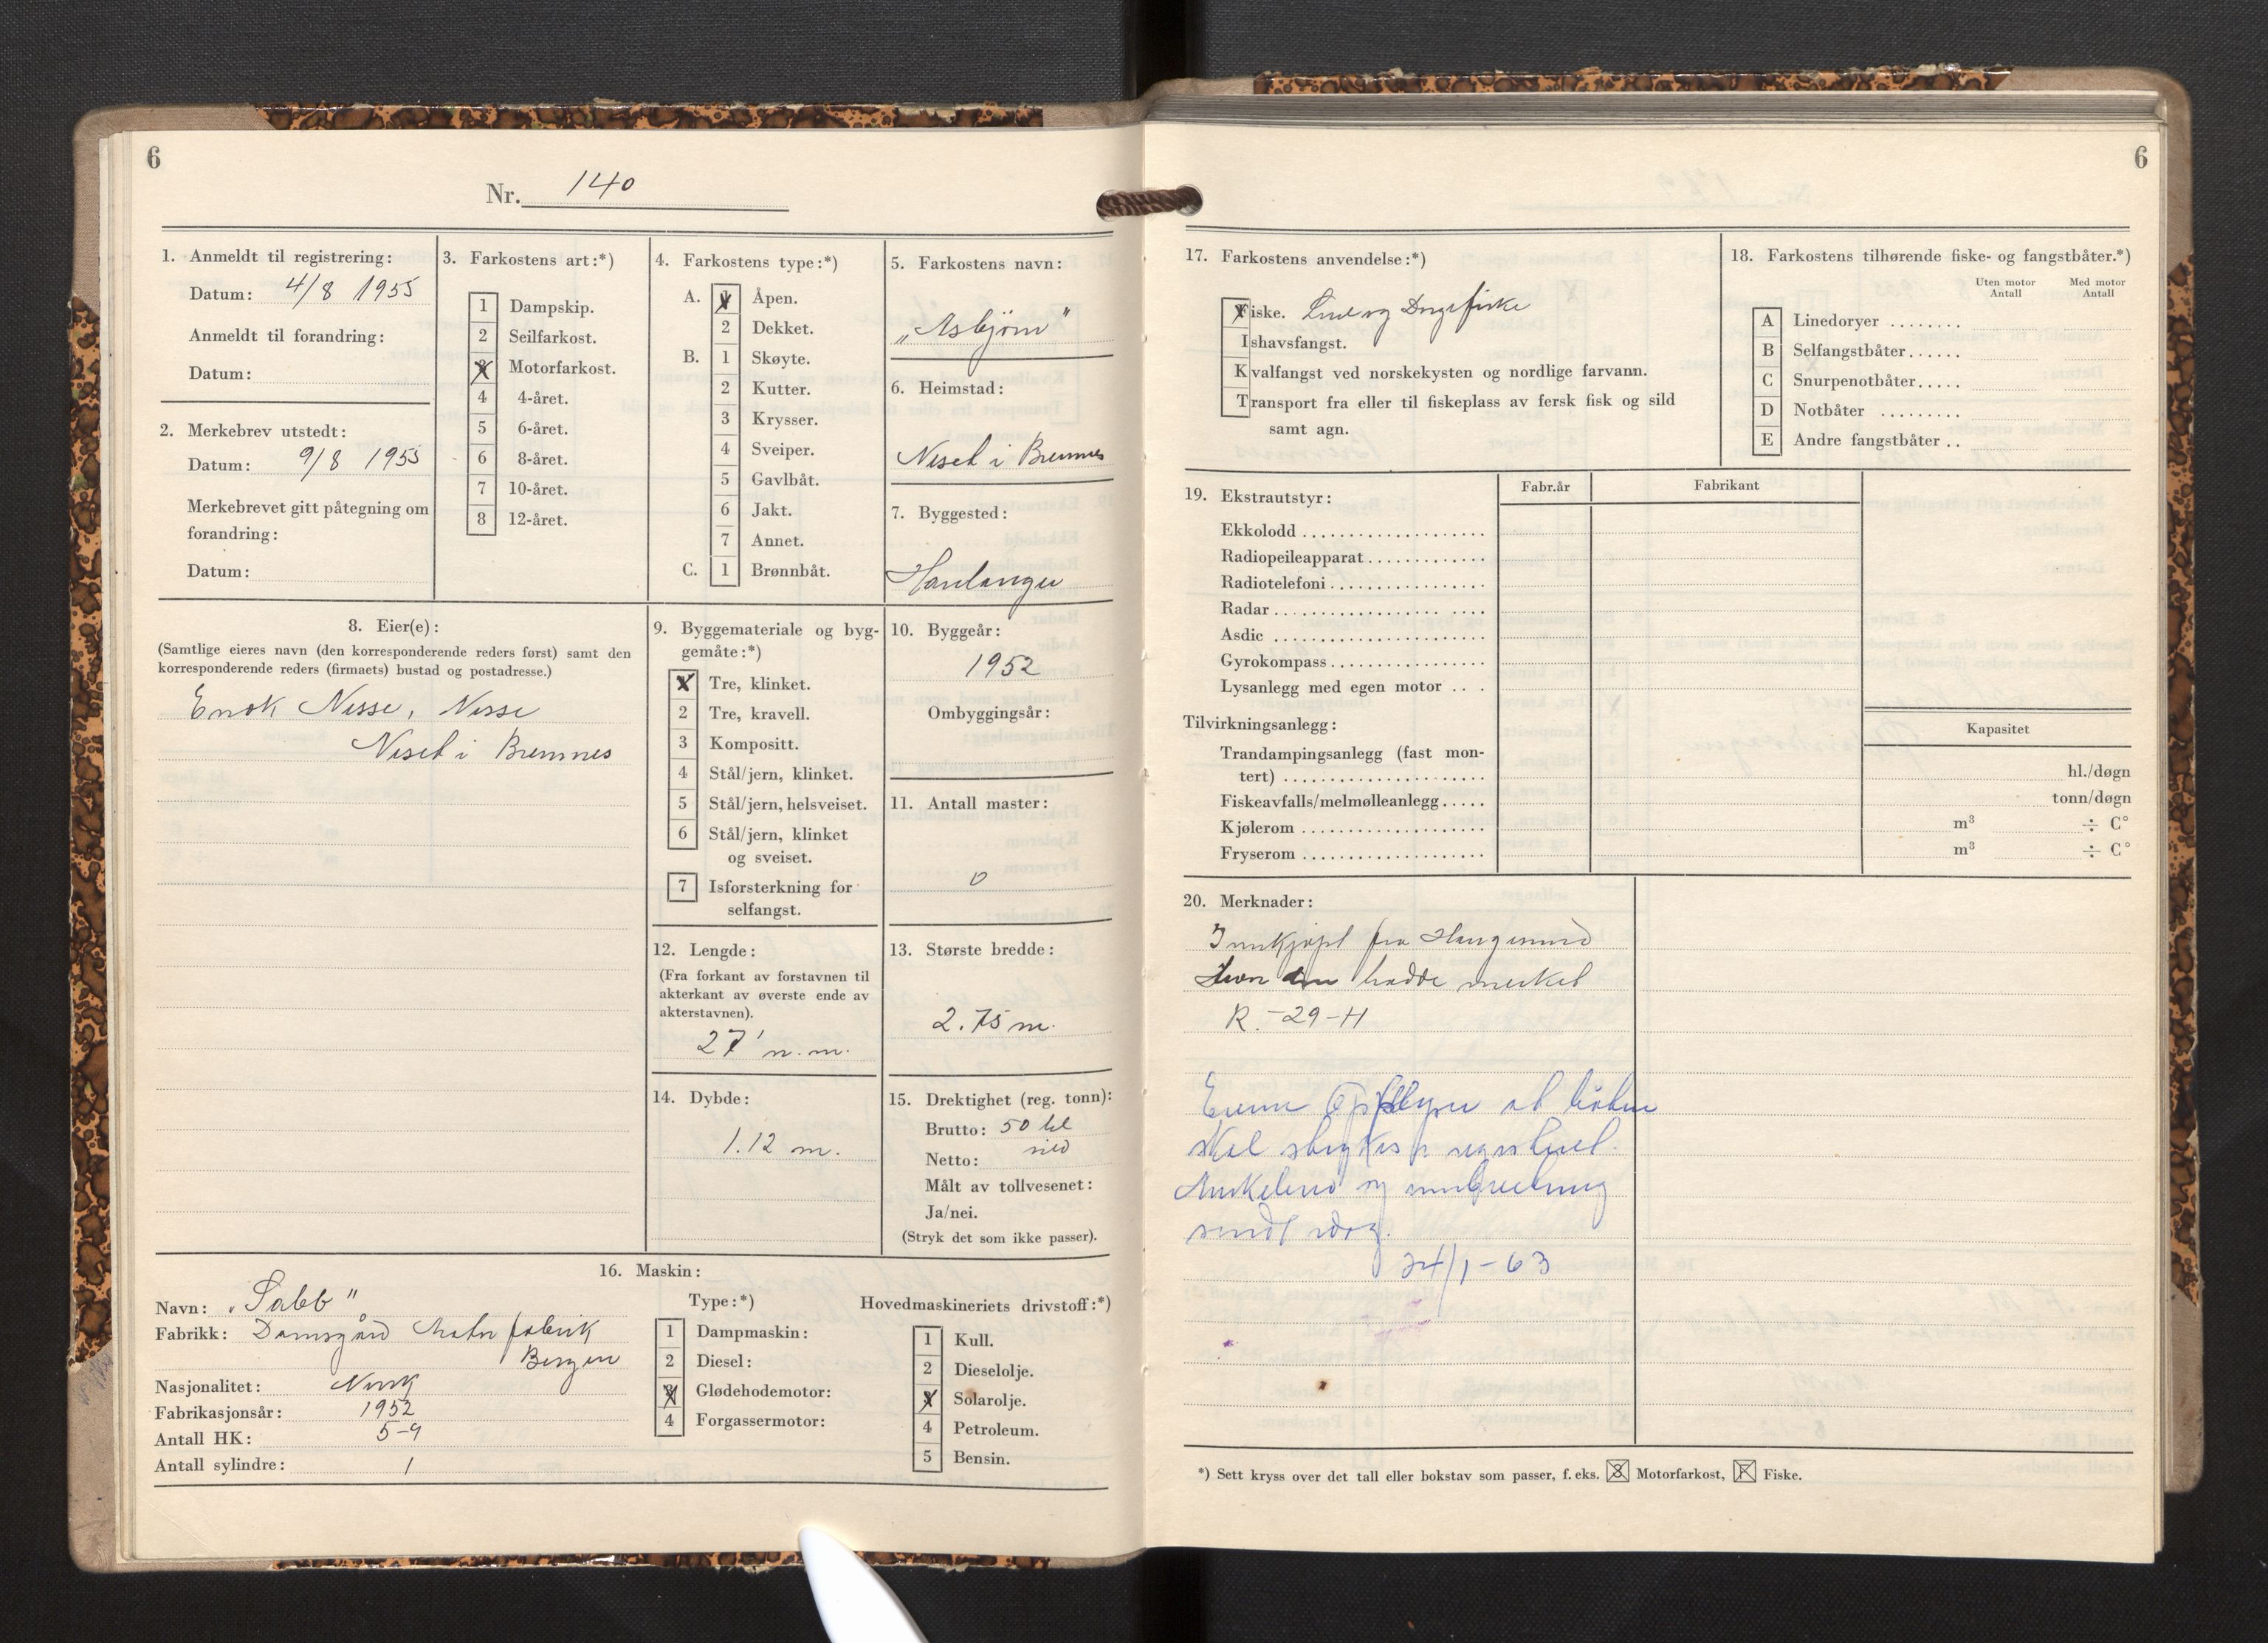 6
Nr. 140
1. Anmeldt til registrering:
Datum: 4/8 1955
Anmeldt til forandring:
Datum:
2. Merkebrev utstedt:
Datum: 9/8 1955
Merkebrevet gitt påtegning om
forandring:
Datum:
3. Farkostens art:*)
1 Dampskip.
2 Seilfarkost.
3 Motorfarkost.
4 4-året.
5 6-året.
6 8-året.
7 10-året.
8 12-året.
4. Farkostens type:*)
A. 1 Åpen.
2 Dekket.
B. 1 Skøyte.
2 Kutter.
3 Krysser.
4 Sveiper.
5 Gavlbåt.
6 Jakt.
7 Annet.
C. 1 Brønnbåt.
5. Farkostens navn:
„Asbjörn"
6. Heimstad:
Neset i Bremnes
7. Byggested:
Hardanger
8. Eier(e):
(Samtlige eieres navn (den korresponderende reders først) samt den
korresponderende reders (firmaets) bustad og postadresse.)
Enok Nesse, Nesse
Neset i Bremnes
9. Byggemateriale og byg-
gemåte:*)
1 Tre, klinket.
2 Tre, kravell.
3 Kompositt.
4 Stål/jern, klinket.
5 Stål/jern, helsveiset.
6 Stål/jern, klinket
og sveiset.
7 Isforsterkning for
selfangst.
10. Byggeår:
1952
Ombyggingsår:
11. Antall master:
0
12. Lengde:
(Fra forkant av forstavnen til
akterkant av øverste ende av
akterstavnen).
27' n.m.
13. Største bredde:
2.75 m.
14. Dybde:
1.12 m.
15. Drektighet (reg. tonn):
Brutto: 50 hl
Netto:
Målt av tollvesenet:
Ja/nei.
(Stryk det som ikke passer).
16. Maskin:
Navn: „Sabb"
Fabrikk: Damsgård Motorfabrik
Bergen
Nasjonalitet: Norsk
Fabrikasjonsår: 1952
Antall HK: 5-9
Antall sylindre: 1
Type:*)
1 Dampmaskin:
2 Diesel:
3 Glødehodemotor:
4 Forgassermotor:
Hovedmaskineriets drivstoff:*)
1 Kull.
2 Dieselolje.
3 Solarolje.
4 Petroleum.
5 Bensin.
6
17. Farkostens anvendelse:*)
Fiske. Line og Dorgefiske
Ishavsfangst.
Kvalfangst ved norskekysten og nordlige farvann.
Transport fra eller til fiskeplass av fersk fisk og sild
samt agn.
18. Farkostens tilhørende fiske- og fangstbåter.*)
Uten motor Antall
Med motor Antall
A Linedoryer ........
B Selfangstbåter......
C Snurpenotbåter.....
D Notbåter .........
E Andre fangstbåter ..
19. Ekstrautstyr:
Fabr.år
Fabrikant
Ekkolodd ....................
Radiopeileapparat .............
Radiotelefoni .................
Radar ....................
Asdic .......................
Gyrokompass .................
Lysanlegg med egen motor ...
Tilvirkningsanlegg:
Kapasitet
Trandampingsanlegg (fast mon-
tert) ...................... hl./døgn
Fiskeavfalls/melmølleanlegg ..... tonn/døgn
Kjølerom .................... m³ ÷ C°
Fryserom .................... m³ ÷ C°
20. Merknader:
Innkjøpt fra Haugesund
hvor den hadde merket
R.-29-H
Eieren Opplyser at båten
skal strykes i registeret.
Merkebrev og innberetning
sendt idag.
24/1-63
*) Sett kryss over det tall eller bokstav som passer, f. eks. 3 Motorfarkost, F Fiske.